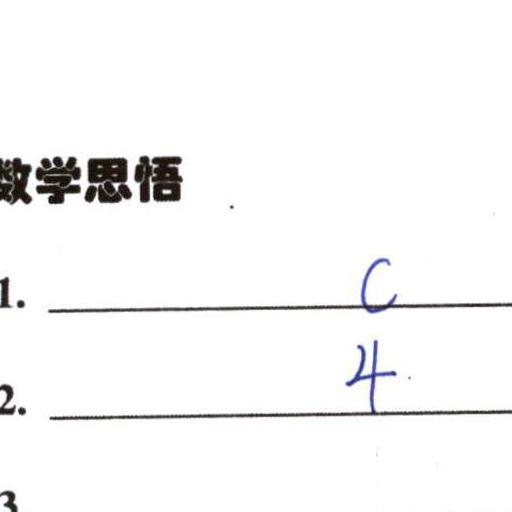 数学思悟
1. C
2. 4
3